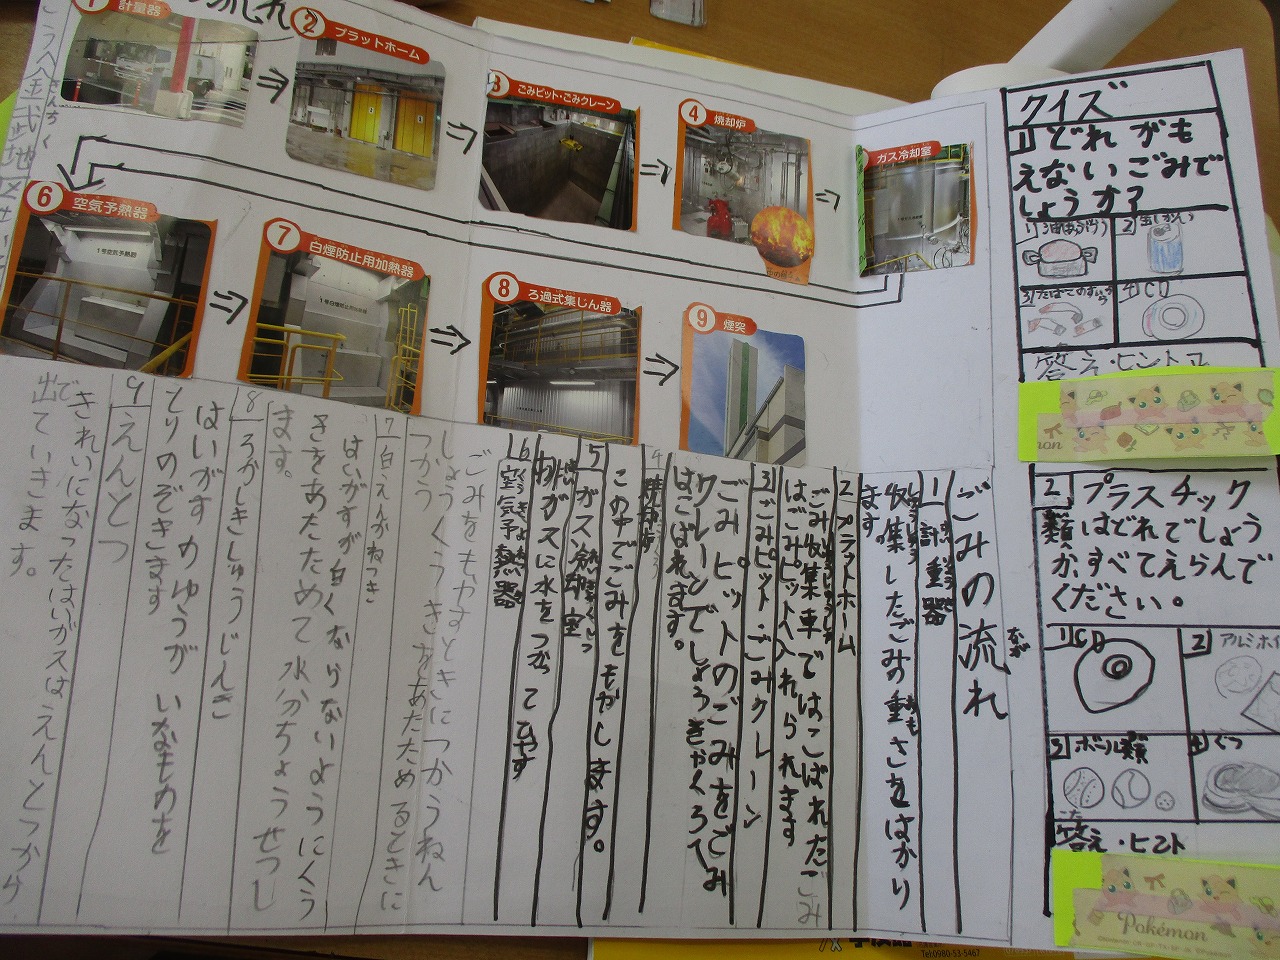 の流れ
1 計量器
2 プラットホーム
3 ごみピット・ごみクレーン
4 焼却炉
ガス冷却室
6 空気予熱器
1号空気予熱器
7 白煙防止用加熱器
8 ろ過式集じん器
9 煙突
クイズ
1 どれがも
えないごみで
しょうか?
2
3
4 CD
答え・ヒント
2 プラスチック
類はどれでしょう
か、すべてえらんで
ください。
1 CD
2 アルミホイ
3 ボール類
4 くつ
こた
答え・ヒント
Pokémon
ごみの流れ
なが
1 計量器
収集したごみの重さをはかり
ます。
2 プラットホーム
ごみ収集車ではこばれたごみ
はごみピット入れられます
3 ごみピットごみクレーン
ごみピットのごみをごみ
クレーンでしょうきゃくろへ
はこばれます。
4 焼却炉
この中でごみをもやします。
5 ガス冷却室
6 空気予熱器
ごみをもやすときにつかうねん
しょうくうきをあたためるときに
つかう
7 白えんかねつき
はいがすが白くならないようにくう
きをあたためて水分ちょうせつし
ます。
8 ろかしきしゅうじんき
はいがすのゆうがいなものを
とりのぞきます
9 えんとつ
きれいになったはいガスはえんとつから
出ていきます。
Tel:0980-53-5467